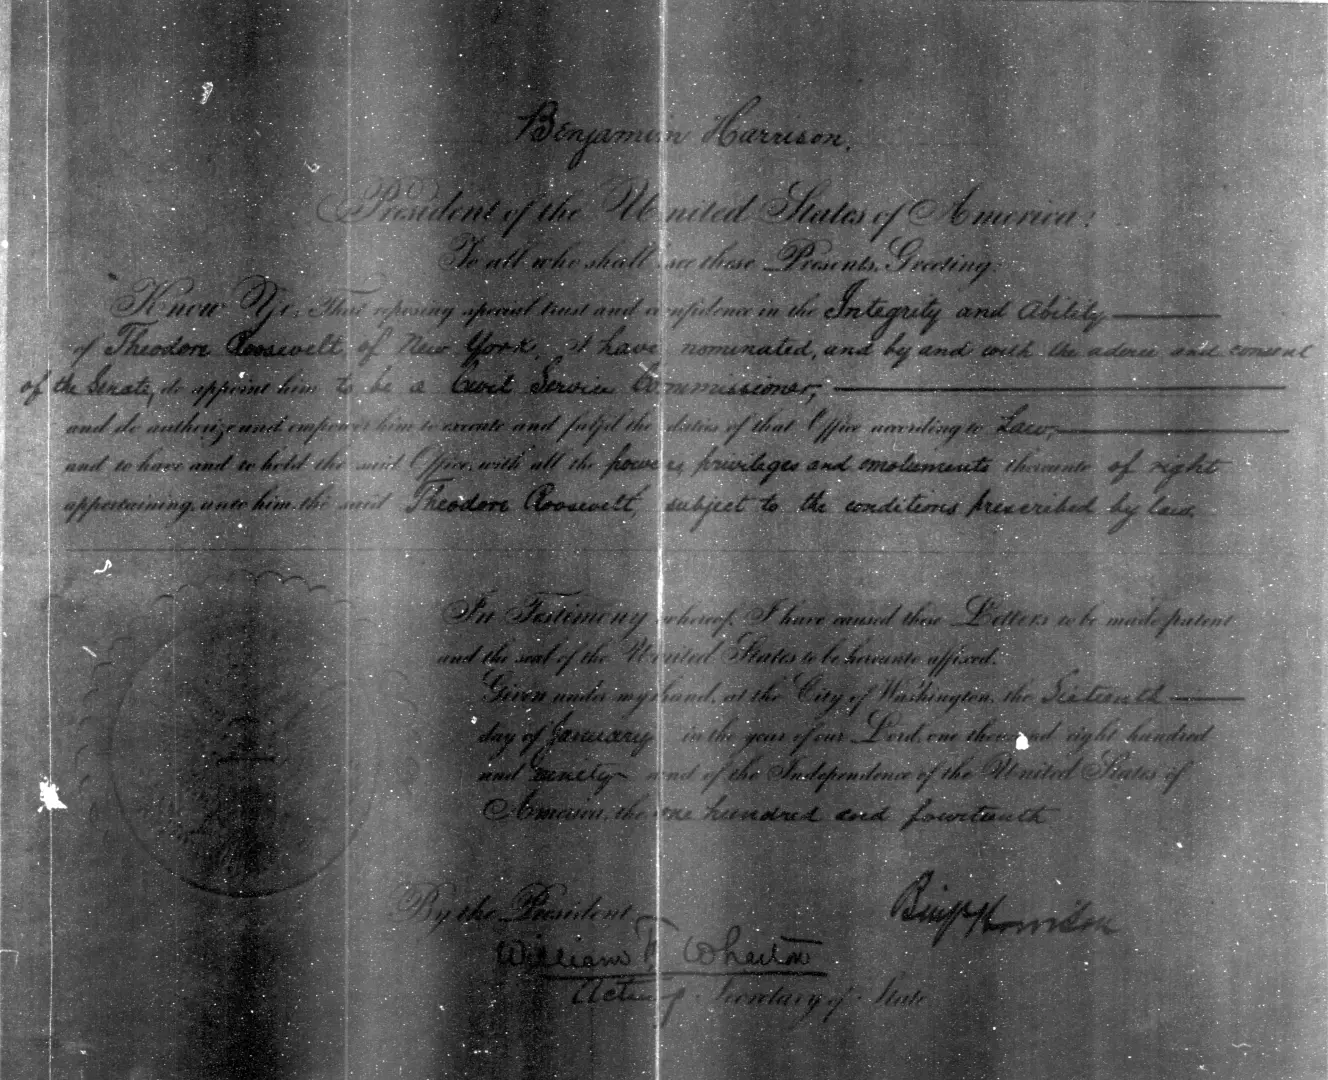 Benjamin Harrison,
President of the United States of America:
To all who shall see these Presents, Greeting:
Know Ye, That reposing special trust and confidence in the Integrity and Ability
of Theodore Roosevelt, of New York, I have nominated, and by and with the advice and consent
of the Senate, do appoint him to be a Civil Service Commissioner,
and do authorize and empower him to execute and fulfil the duties of that Office according to Law,
and to have and to hold the said Office, with all the powers, privileges and emoluments thereunto of right
appertaining, unto him, the said Theodore Roosevelt, subject to the conditions prescribed by law.
In Testimony whereof, I have caused these Letters to be made patent
and the seal of the United States to be hereunto affixed.
Given under my hand, at the City of Washington, the Sixteenth
day of January in the year of our Lord, one thousand eight hundred
and ninety and of the Independence of the United States of
America, the one hundred and fourteenth
Benj Harrison
By the President
William F. Wharton
Acting Secretary of State